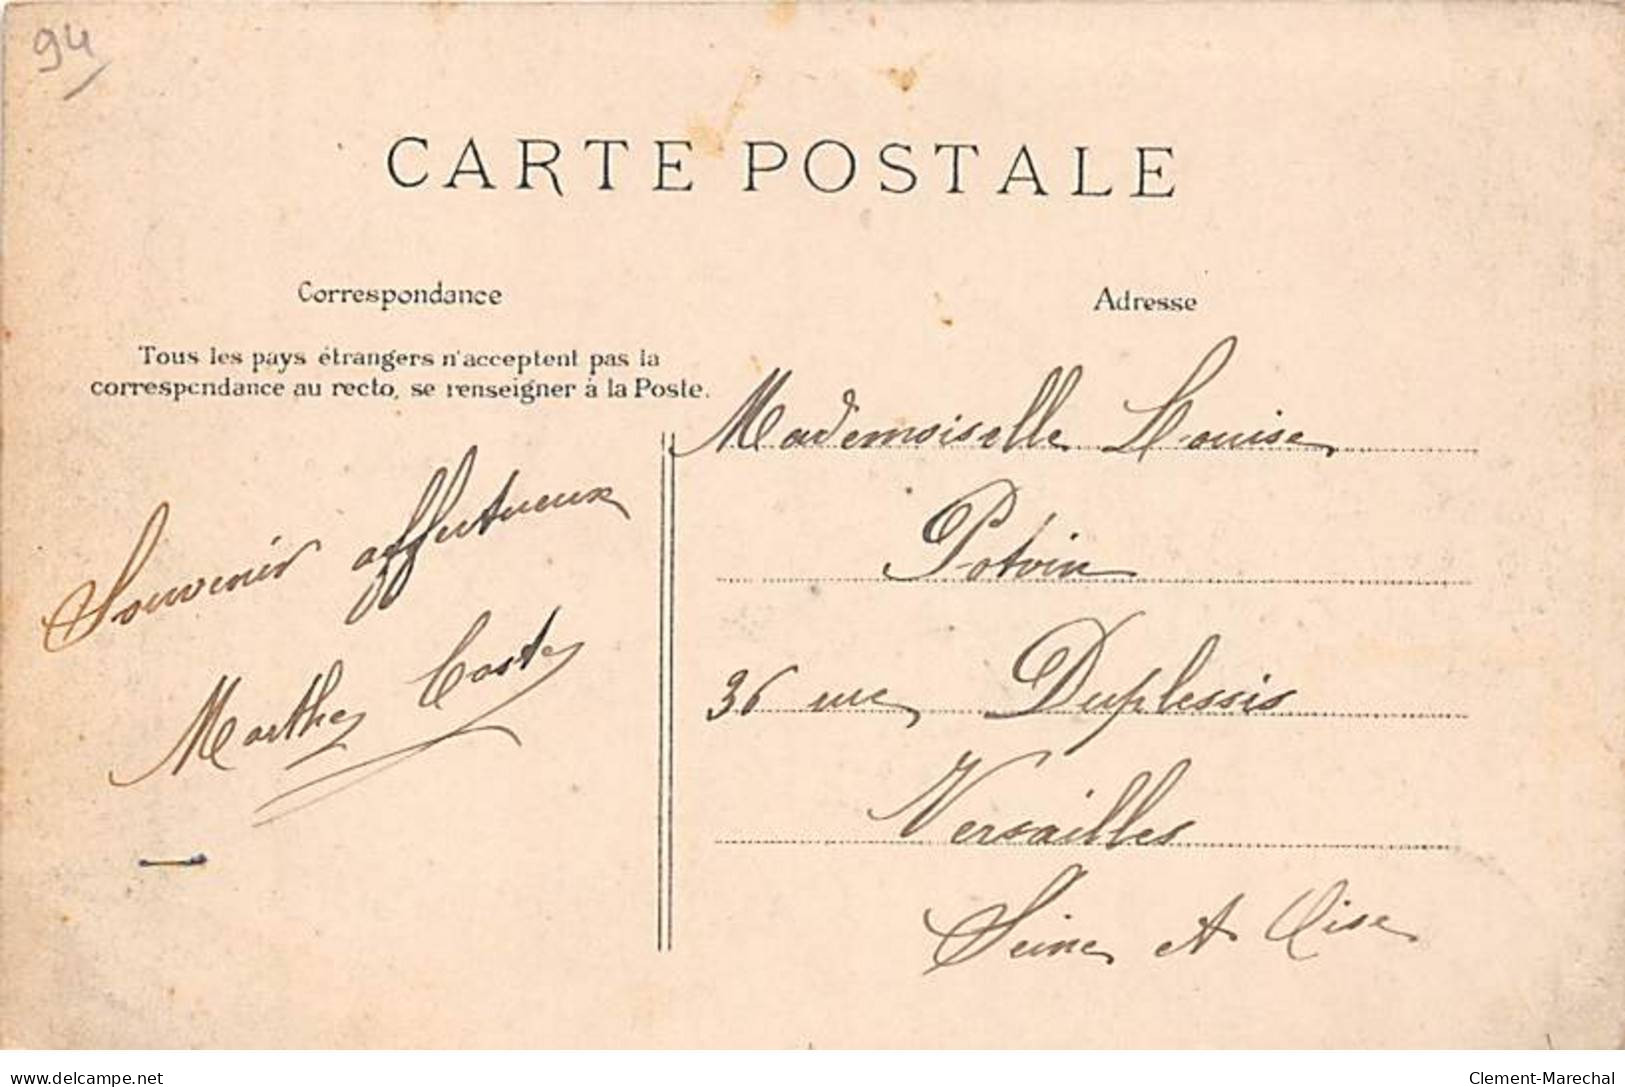 94
CARTE POSTALE
Correspondance
Tous les pays étrangers n'acceptent pas la
correspondance au recto, se renseigner à la Poste.
Souvenir affectueux
Marthe Coste
Adresse
Mademoiselle Louise
Potvin
36 rue Duplessis
Versailles
Seine et Oise
www.delcampe.net
Clement-Marechal